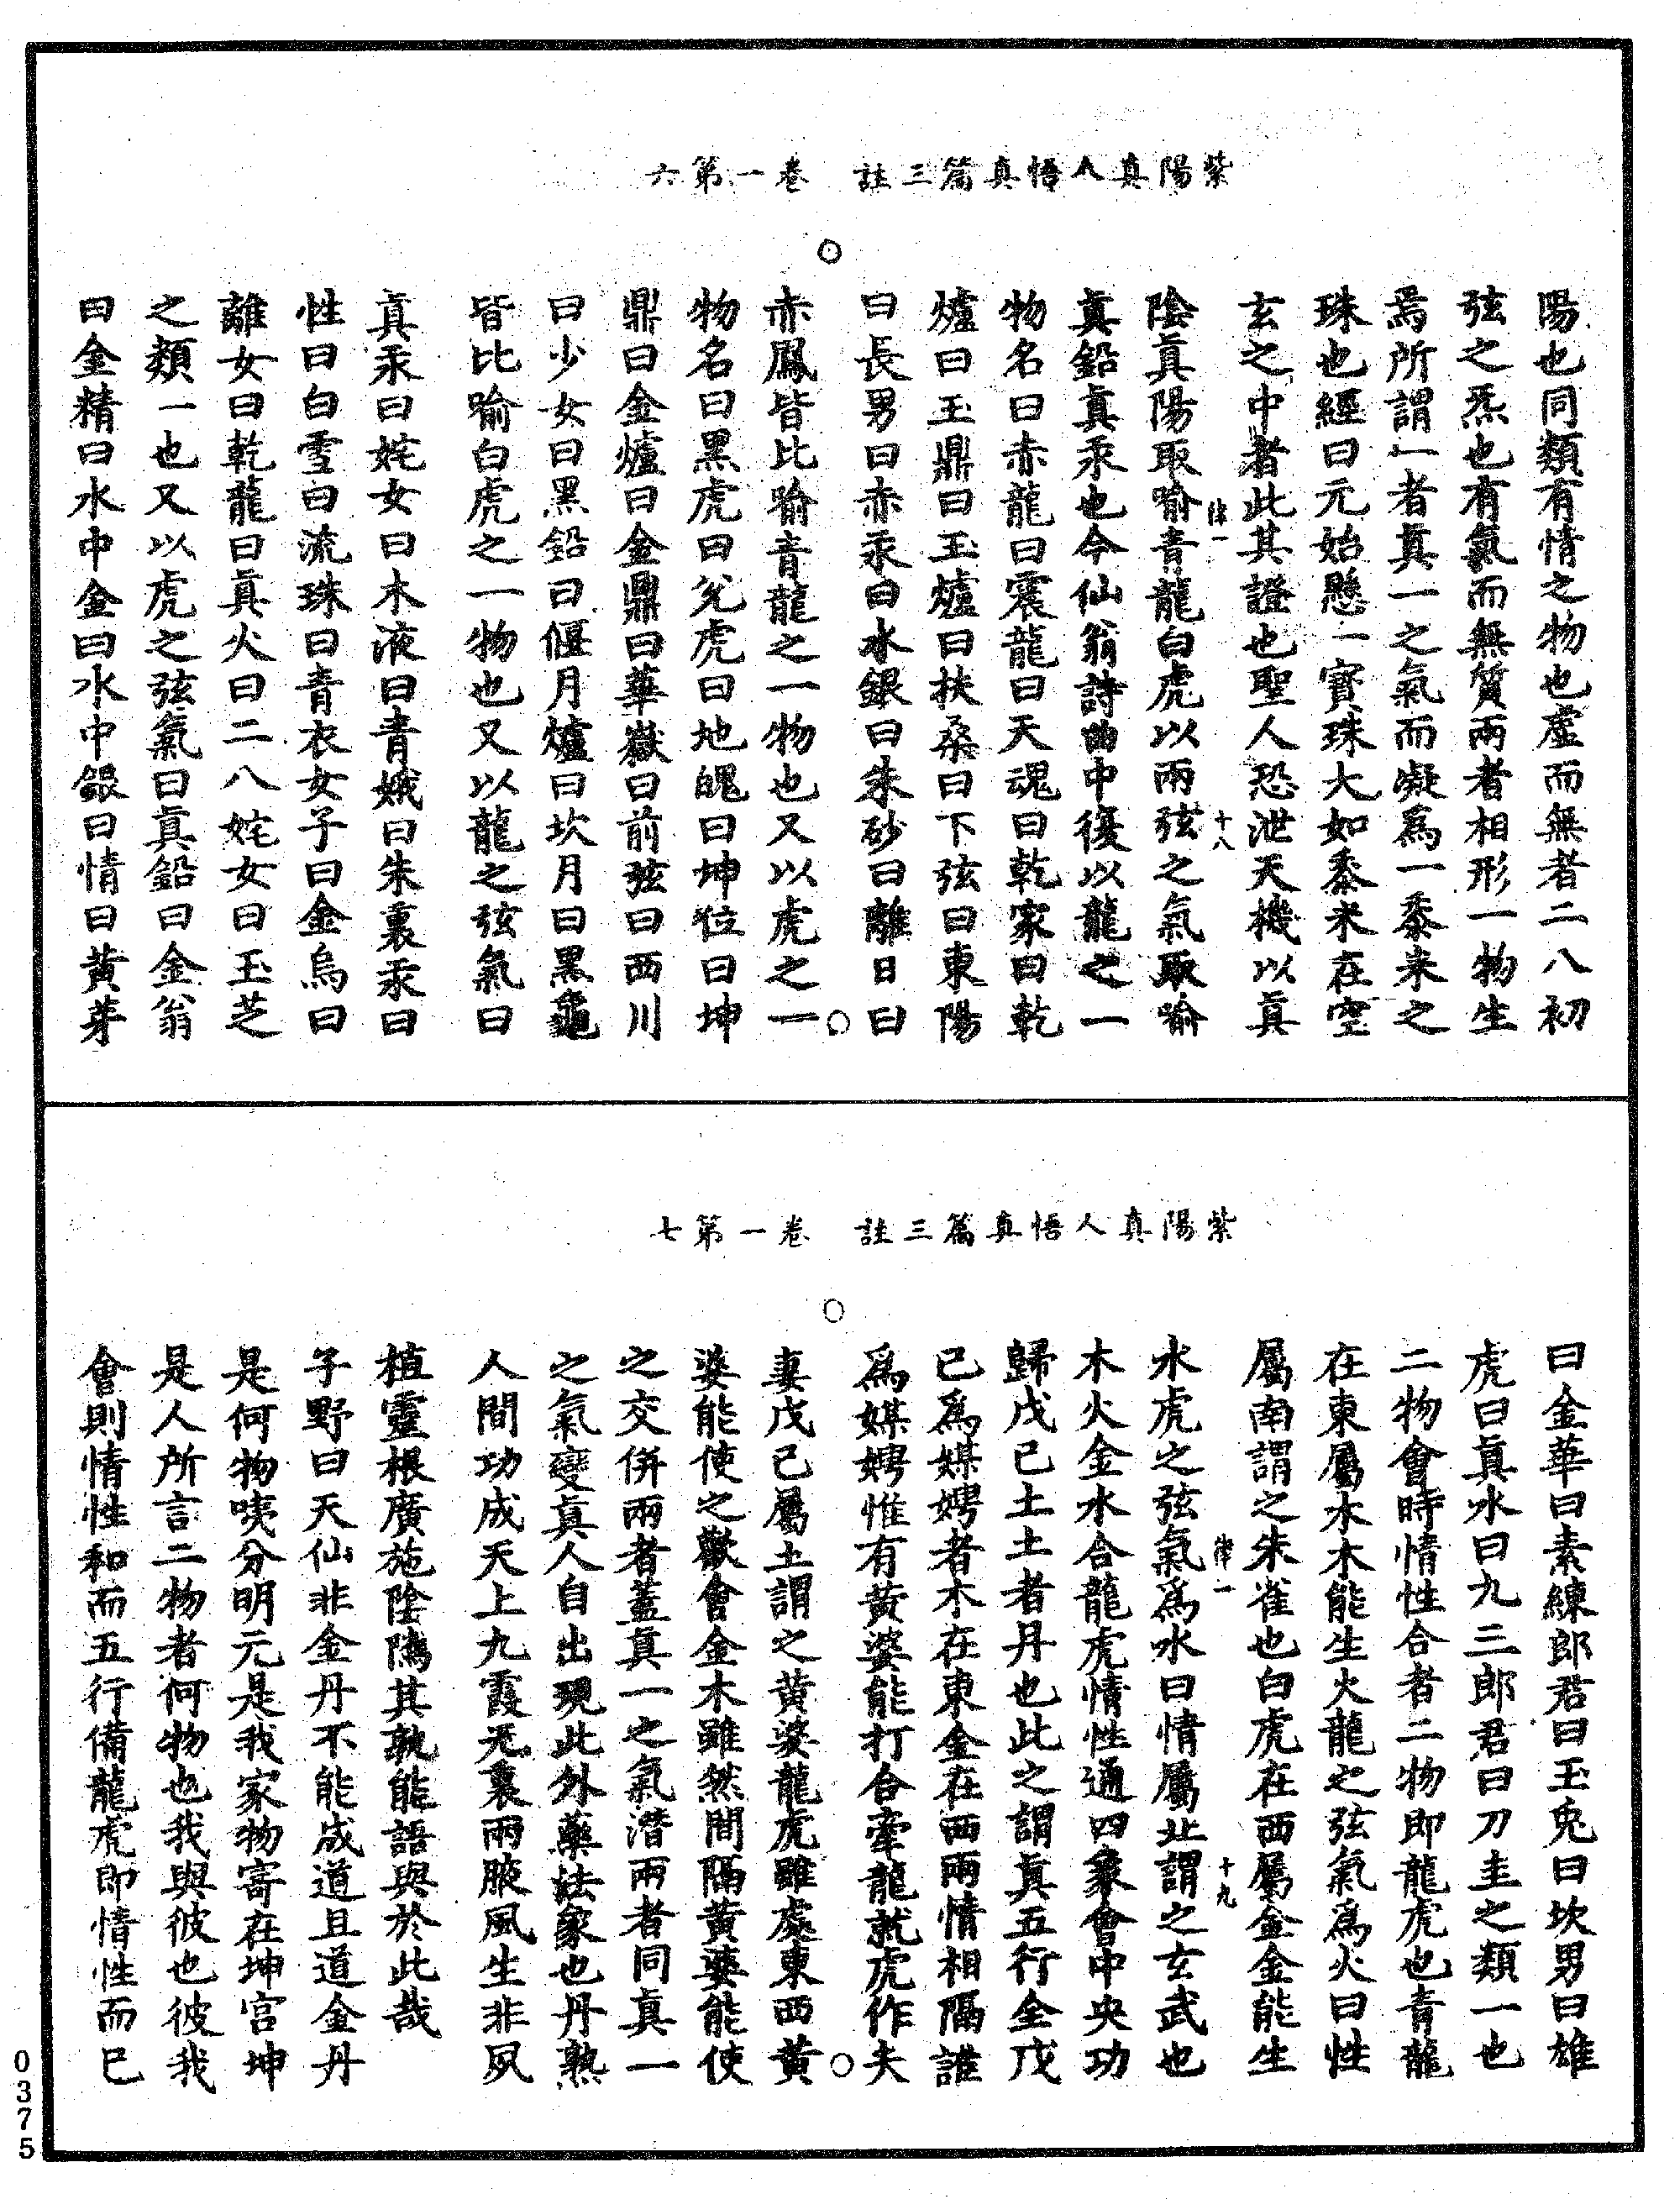 紫陽真人悟真篇三註　卷一第六
陽也同類有情之物也虛而無者二八初
弦之炁也有氣而無質兩者相形一物生
焉所謂一者真一之氣而凝爲一黍米之
珠也經曰元始懸一寶珠大如黍米在空
玄之中者此其證也聖人恐泄天機以真
律一　十八
陰真陽取喻青龍白虎以兩弦之氣取喻
真鉛真汞也今仙翁詩曲中復以龍之一
物名曰赤龍曰震龍曰天魂曰乾家曰乾
爐曰玉鼎曰玉爐曰扶桑曰下弦曰東陽
曰長男曰赤汞曰水銀曰朱砂曰離日曰
赤鳳皆比喻青龍之一物也又以虎之一
物名曰黑虎曰兌虎曰地魄曰坤位曰坤
鼎曰金爐曰金鼎曰華嶽曰前弦曰西川
曰少女曰黑鉛曰偃月爐曰坎月曰黑龜
皆比喻白虎之一物也又以龍之弦氣曰
真汞曰姹女曰木液曰青娥曰朱裏汞曰
性曰白雪曰流珠曰青衣女子曰金烏曰
離女曰乾龍曰真火曰二八姹女曰玉芝
之類一也又以虎之弦氣曰真鉛曰金翁
曰金精曰水中金曰水中銀曰情曰黃芽
紫陽真人悟真篇三註　卷一第七
曰金華曰素練郎君曰玉兎曰坎男曰雄
虎曰真水曰九三郎君曰刀圭之類一也
二物會時情性合者二物即龍虎也青龍
在東屬木木能生火龍之弦氣爲火曰性
屬南謂之朱雀也白虎在西屬金金能生
律一　十九
水虎之弦氣爲水曰情屬北謂之玄武也
木火金水合龍虎情性通四象會中央功
歸戊己土土者丹也此之謂真五行全戊
己爲媒娉者木在東金在西兩情相隔誰
爲媒娉惟有黃婆能打合牽龍就虎作夫
妻戊己屬土謂之黃婆龍虎雖處東西黃
婆能使之歡會金木雖然間隔黃婆能使
之交併兩者蓋真一之氣潛兩者同真一
之氣變真人自出現此外藥法象也丹熟
人間功成天上九霞无裏兩腋風生非夙
植靈根廣施陰隲其孰能語與於此哉
子野曰天仙非金丹不能成道且道金丹
是何物咦分明元是我家物寄在坤宮坤
是人所言二物者何物也我與彼也彼我
會則情性和而五行備龍虎即情性而已
0375